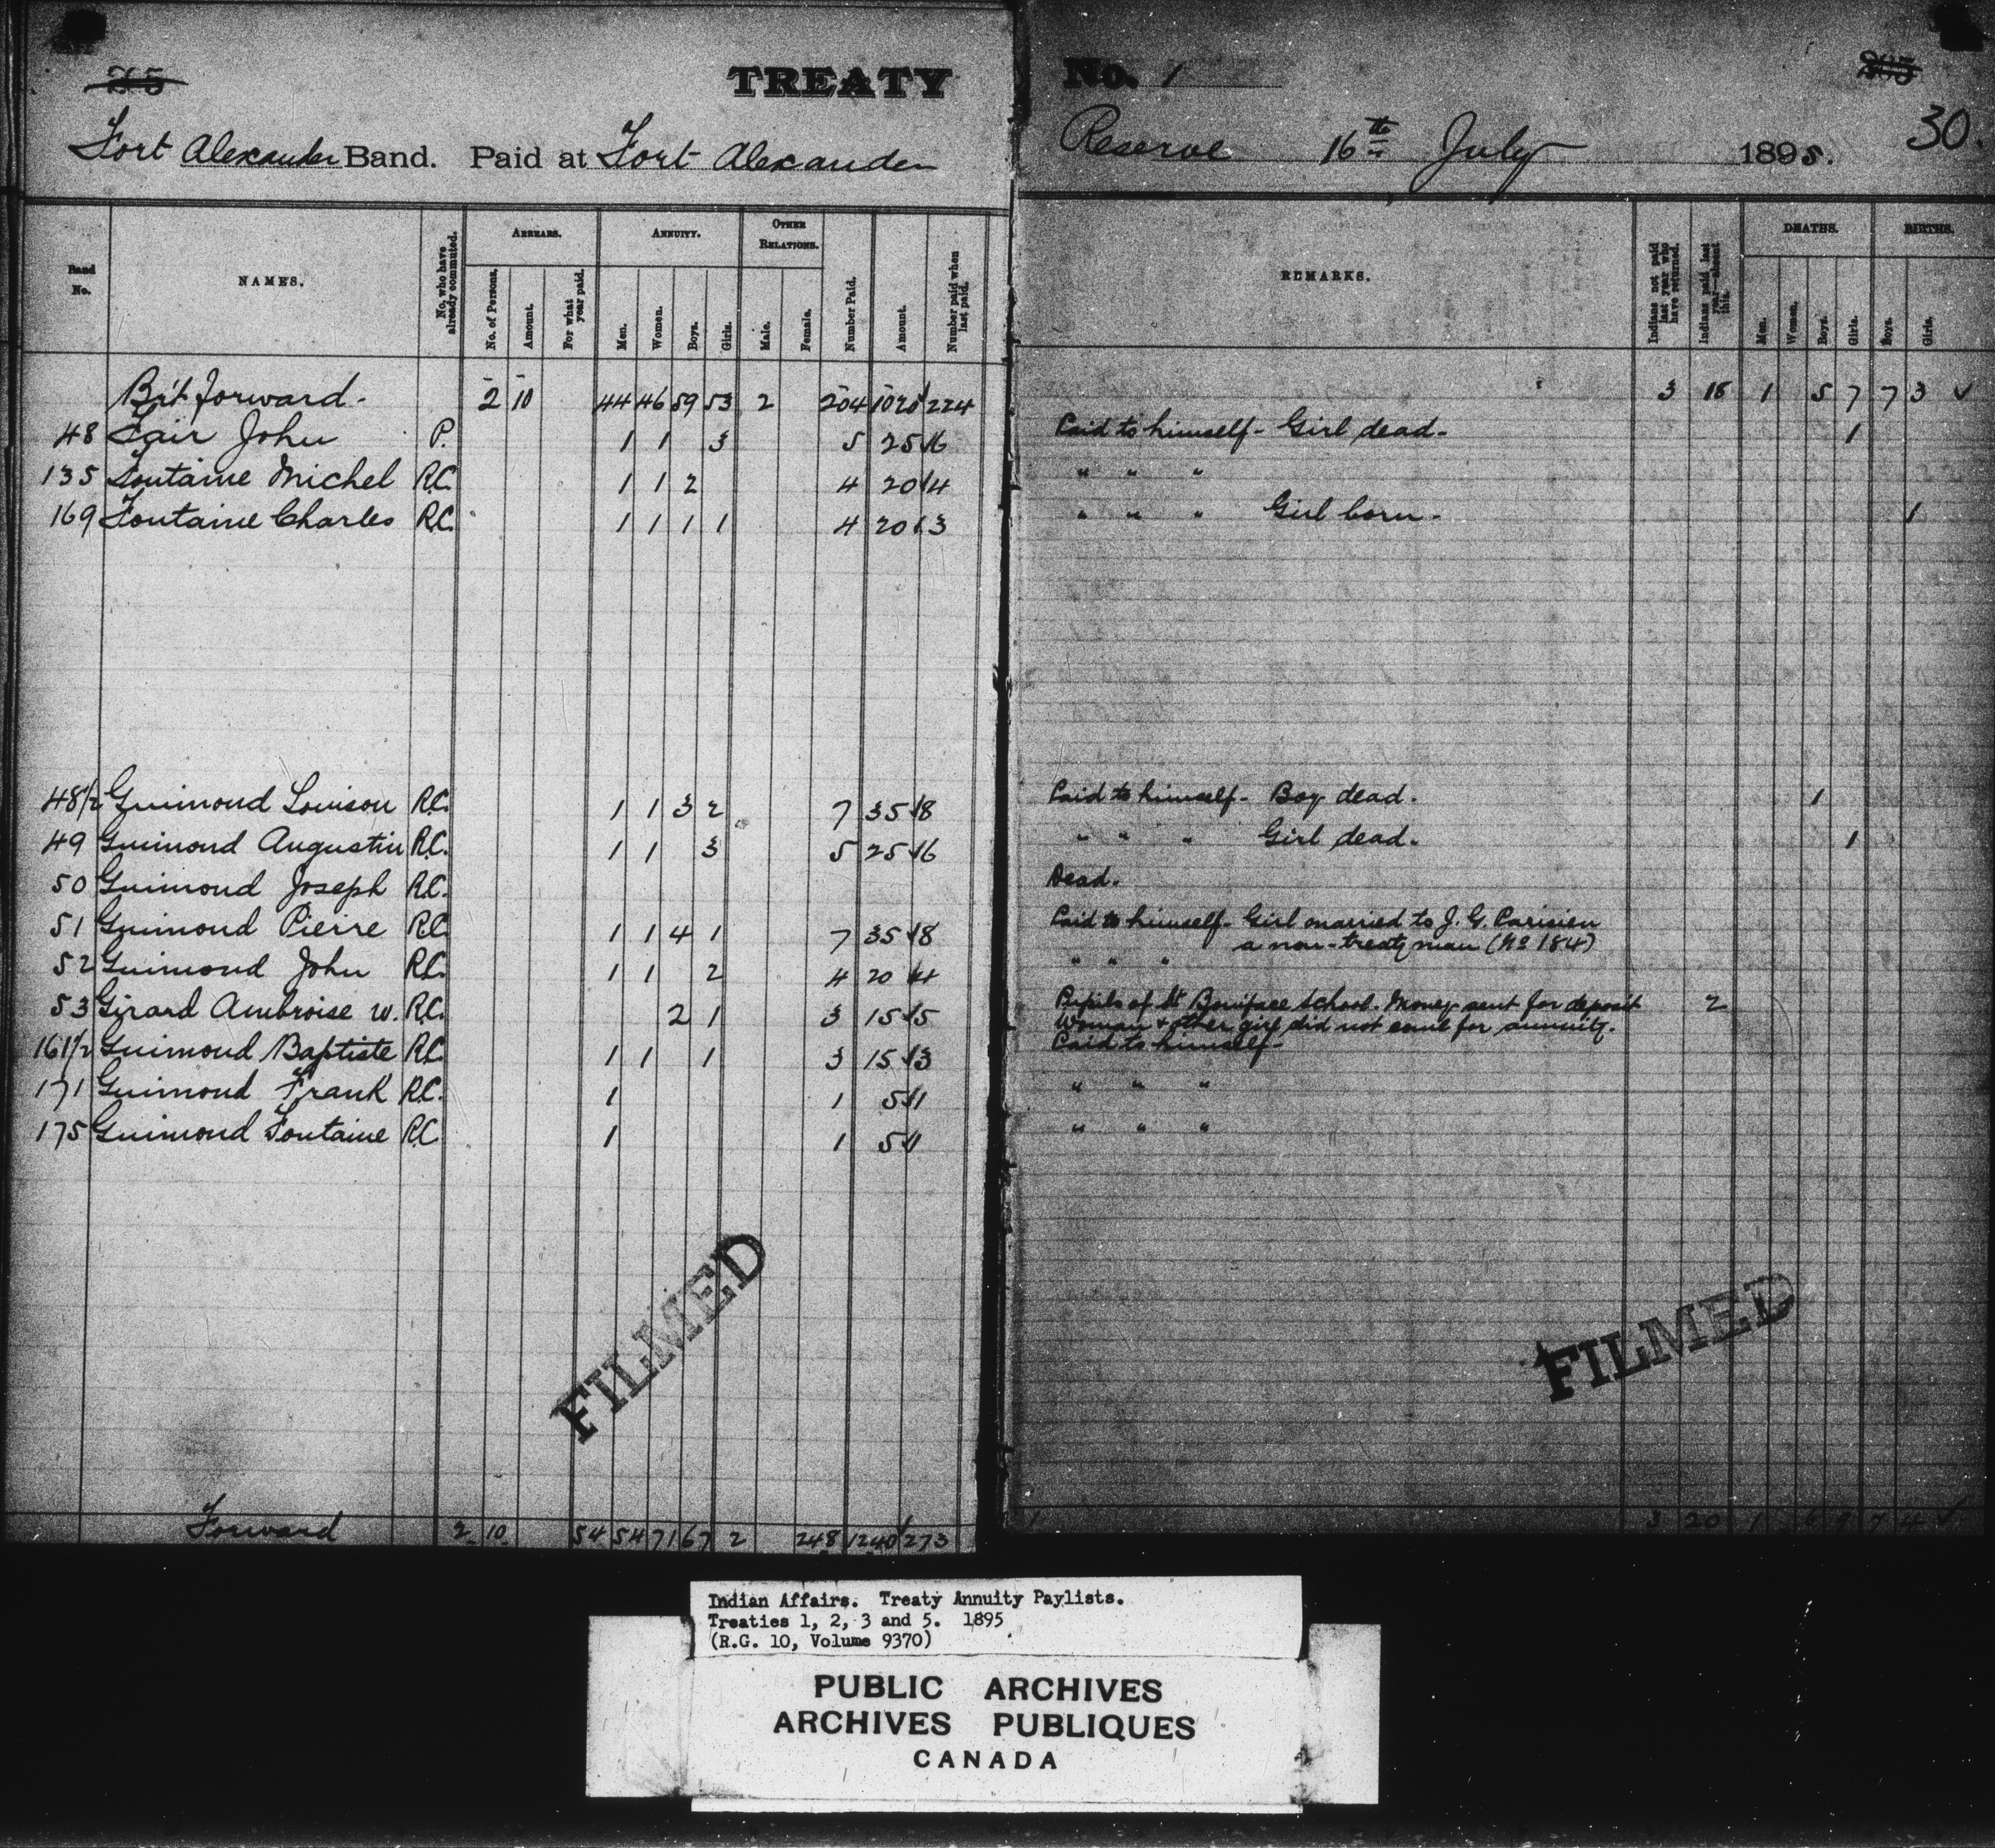 265 TREATY No. 1 265
Fort Alexander Band. Paid at Fort Alexander Reserve 16th July 1895. 30.
Band No. NAMES. No. who have already commuted. ARREARS. ANNUITY. OTHER RELATIONS. Number Paid. Amount. Number paid when last paid. REMARKS. Indians not paid last year who have returned. Indians paid last year—absent this. DEATHS. BIRTHS.
No. of Persons. Amount. For what year paid. Men. Women. Boys. Girls. Male. Female. Men. Women. Boys. Girls. Boys. Girls.
Br't forward - 2 10 44 46 59 53 2 204 1020 224 3 18 1 5 7 7 3 ✓
48 Fair John P. 1 1 3 5 25 6 Paid to himself - Girl dead - 1
135 Fontaine Michel R.C. 1 1 2 4 20 4 " " "
169 Fontaine Charles R.C. 1 1 1 1 4 20 3 " " " Girl born - 1
48 1/2 Guimond Louison R.C. 1 1 3 2 7 35 8 Paid to himself - Boy dead. 1
49 Guimond Augustin R.C. 1 1 3 5 25 6 " " " Girl dead. 1
50 Guimond Joseph R.C. Dead.
51 Guimond Pierre R.C. 1 1 4 1 7 35 8 Paid to himself - Girl married to J. G. Parisien
a non-treaty man (No 184)
52 Guimond John R.C. 1 1 2 4 20 4 " " "
53 Girard Ambroise w. R.C. 2 1 3 15 5 Pupils of St Boniface School. Money sent for deposit 2
Woman & other girl did not come for annuity.
161 1/2 Guimond Baptiste R.C. 1 1 1 3 15 3 Paid to himself -
171 Guimond Frank R.C. 1 1 5 1 " " "
175 Guimond Fontaine R.C. 1 1 5 1 " " "
FILMED FILMED
Forward 2 10 54 54 71 67 2 248 1240 273 3 20 1 6 9 7 4 ✓
Indian Affairs. Treaty Annuity Paylists.
Treaties 1, 2, 3 and 5. 1895
(R.G. 10, Volume 9370)
PUBLIC ARCHIVES
ARCHIVES PUBLIQUES
CANADA